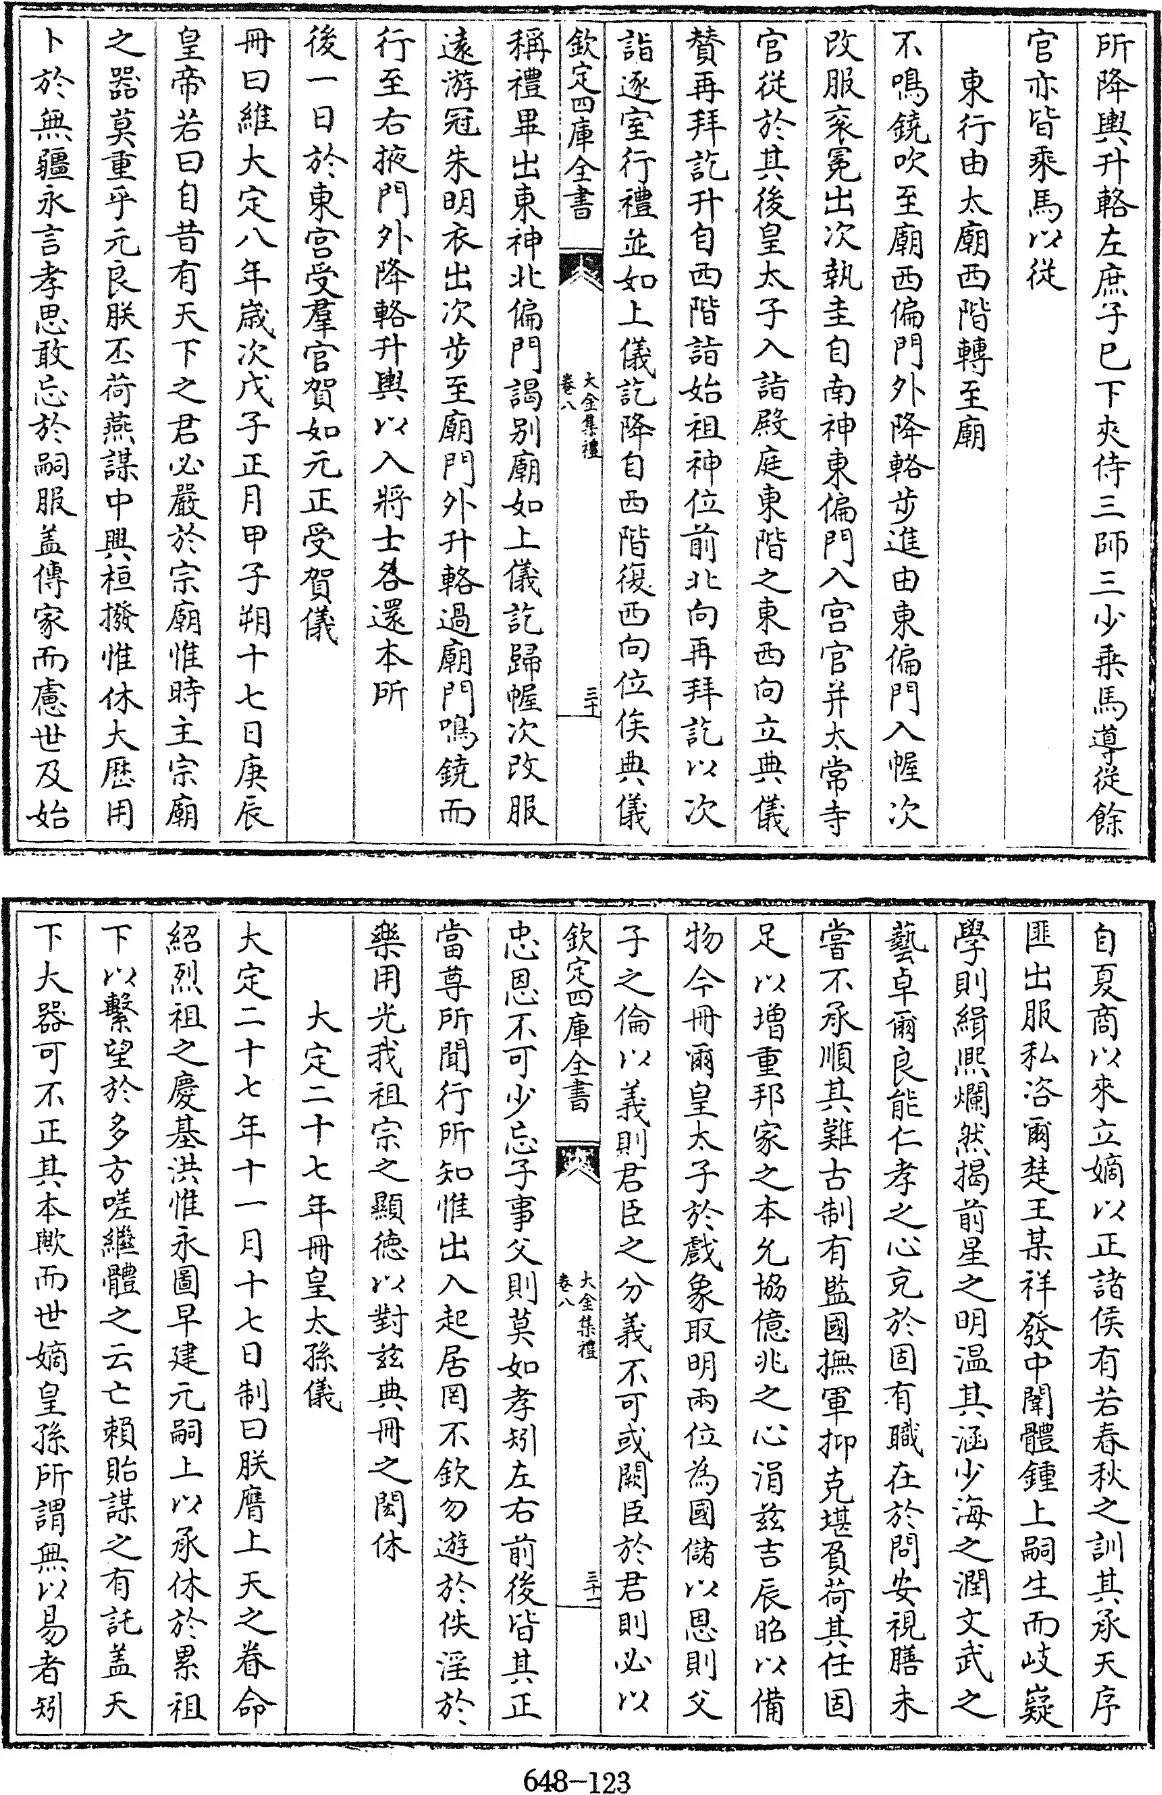 所降輿升輅左庶子已下夾侍三師三少乗馬導從餘
官亦皆乘馬以從
東行由太廟西階轉至廟
不鳴鐃吹至廟西偏門外降輅步進由東偏門入幄次
改服衮冕出次執圭自南神東偏門入宫官并太常寺
官從於其後皇太子入詣殿庭東階之東西向立典儀
賛再拜訖升自西階詣始祖神位前北向再拜訖以次
詣逐室行禮並如上儀訖降自西階復西向位俟典儀
欽定四庫全書
大金集禮
卷八
三十
稱禮畢出東神北偏門謁别廟如上儀訖歸幄次改服
逺游冠朱明衣出次步至廟門外升輅過廟門鳴鐃而
行至右掖門外降輅升輿以入將士各還本所
後一日於東宫受羣官賀如元正受賀儀
冊曰維大定八年歲次戊子正月甲子朔十七日庚辰
皇帝若曰自昔有天下之君必嚴於宗廟惟時主宗廟
之器莫重乎元良朕丕荷燕謀中興桓撥惟休大歴用
卜於無疆永言孝思敢忘於嗣服盖傳家而慮世及始
自夏商以來立嫡以正諸侯有若春秋之訓其承天序
匪出服私咨爾楚王某祥發中闈體鍾上嗣生而岐嶷
學則緝熙爛然揭前星之明温其涵少海之潤文武之
藝卓爾良能仁孝之心克於固有職在於問安視膳未
嘗不承順其難古制有監國撫軍抑克堪負荷其任固
足以增重邦家之本允協億兆之心涓兹吉辰昭以備
物今冊爾皇太子於戲象取明兩位為國儲以恩則父
子之倫以義則君臣之分義不可或闕臣於君則必以
欽定四庫全書
大金集禮
卷八
三十一
忠恩不可少忘子事父則莫如孝矧左右前後皆其正
當尊所聞行所知惟出入起居罔不欽勿遊於佚淫於
樂用光我祖宗之顯德以對兹典冊之閎休
大定二十七年冊皇太孫儀
大定二十七年十一月十七日制曰朕膺上天之眷命
紹烈祖之慶基洪惟永圖早建元嗣上以承休於累祖
下以繫望於多方嗟繼體之云亡賴貽謀之有託盖天
下大器可不正其本歟而世嫡皇孫所謂無以易者矧
648-123